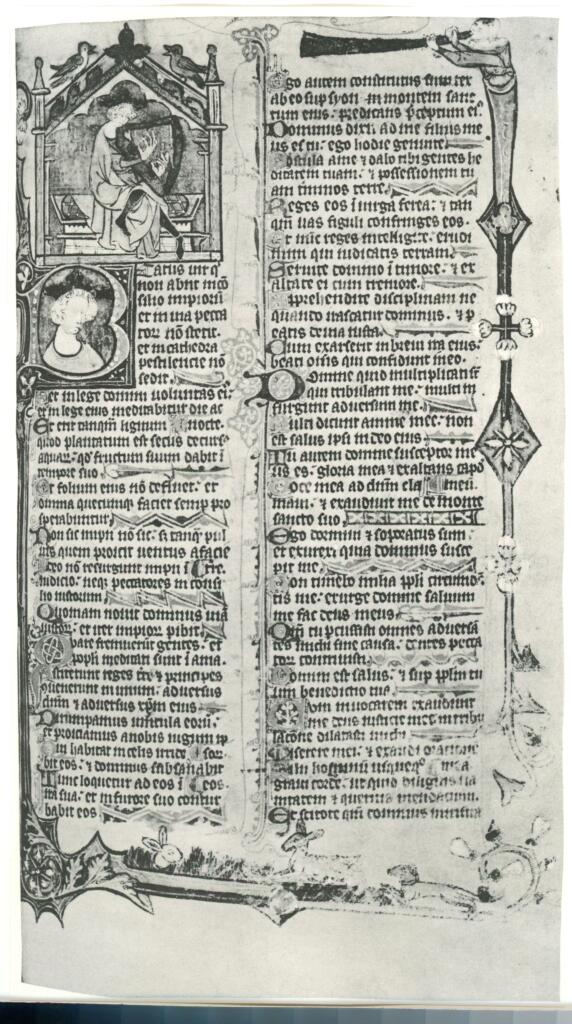 Beatus vir q'
non abiit in co
silio impioru
et in uia pecca
tor nō stetit.
et in cathedra
pestilencie nō
sedit.
Set in lege domini uoluntas ei'
et in lege eius meditabitur die ac
Et erit tanqm lignum nocte.
quod plantatum est secus decurs'
aquar. qd fructum suum dabit ī
tempore suo
Et folium eius nō defluet. et
omnia quecumq; faciet semp pro
sperabuntur
Non sic impii nō sic. s; tanq; pul
uis quem proicit uentus a facie
Ideo nō resurgunt impii ī terre.
iudicio. neq; peccatores in consi
lio iustorum
Quoniam nouit dominus uiā
iustor. et iter impior pibit.
Quare fremuerunt gentes. et
popli meditati sunt īania.
Astiterunt reges tre & principes
conuenerunt in unum. aduersus
dnm & aduersus xpm eius
Dirumpamus uincula eoru.
et proiciamus anobis iugum ip
Qui habitat in celis irride sor.
bit eos. & dominus subsanabit
Tunc loquetur ad eos ī eos
ira sua. et in furore suo contur
babit eos
Ego autem constitutus sum rex
ab eo sup syon in montem sanc
tum eius. predicans pceptum ei'.
Dominus dixit ad me filius me
us es tu. ego hodie genui te
Postula a me & dabo tibi gentes he
ditatem tuam. & possessionem tu
am tminos terre
Reges eos ī uirga ferea. & tan
qm uas figuli confringes eos.
Et nūc reges intelligite. erudi
mini qui iudicatis terram
Seruite domino ī timore. & ex
ultate ei cum tremore.
Apprehendite disciplinam ne
quando irascatur dominus. & p
eatis de uia iusta
Cum exarserit in breui ira eius.
beati omīs qui confidunt in eo.
Domine quid multiplicati st
qui tribulant me. multi in
surgunt aduersum me
Multi dicunt anime mee. non
est salus ipsi in deo eius
Tu autem domine susceptor me
us es. gloria mea & exaltans capd
Voce mea ad dnm cla meū.
maui. & exaudiuit me de monte
sancto suo
Ego dormiui & soporatus sum.
et exurexi quia dominus susce
pit me
Non timebo milia ppli circumd
tis me. exurge domine saluum
me fac deus meus
Qm tu pcussisti omnes aduersā
tes michi sine causa. dentes pecca
tor contriuisti
Domini est salus. & sup pplm tu
um benedictio tua
Cum inuocarem exaudiuit
me deus iusticie mee in tribu
lacōne dilatasti michi
Miserere mei. & exaudi orationē
Filii hominū usquequo mea
graui corde. ut quid diligitis ua
nitatem & queritis mendacium.
Et scitote qm dominus mirifica